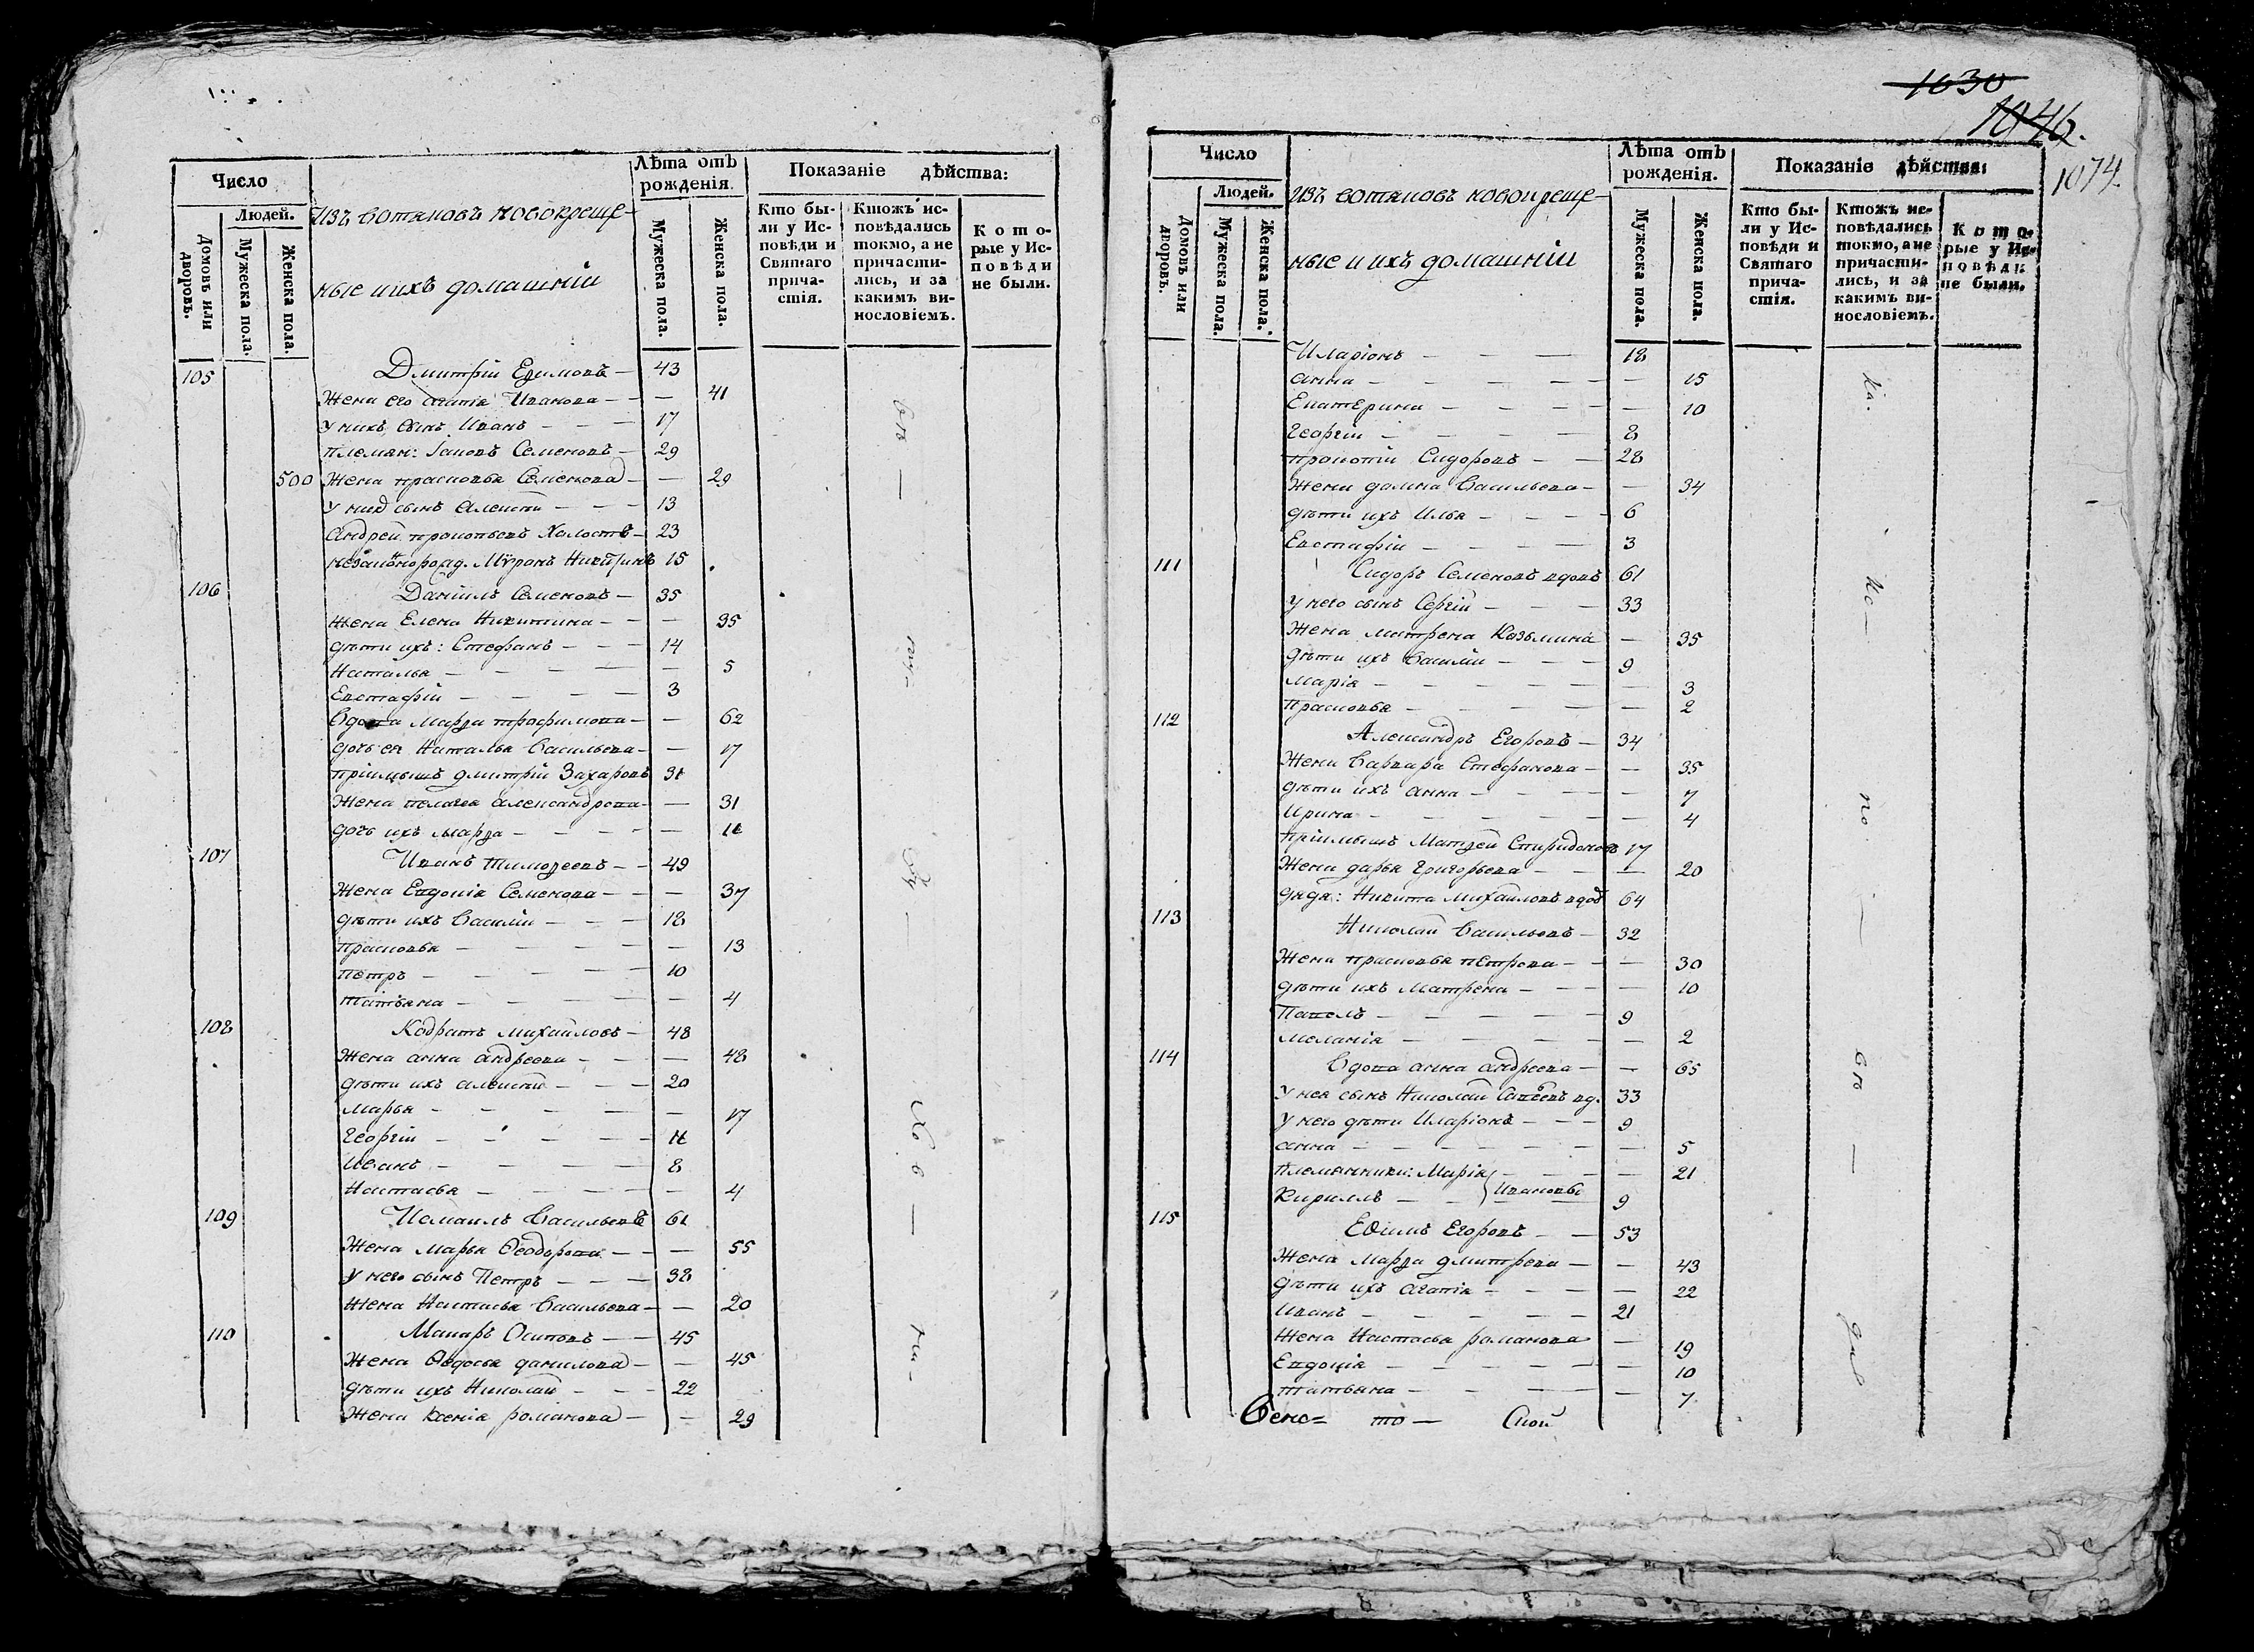 1030
1046.
1074.
Число
Людей.
Домовъ или дворовъ.
Мужеска пола.
Женска пола.
Изъ вотяковъ новокреще-
ные и ихъ домашніи
Лѣта отъ рожденія.
Мужеска пола.
Женска пола.
Показаніе дѣйства:
Кто бы-
ли у Ис-
повѣди и
Святаго
прича-
стія.
Ктожъ ис-
повѣдались
токмо, а не
причасти-
лись, и за
какимъ ви-
нословіемъ.
Кото-
рые у Ис-
повѣди
не были.
105 Дмитрій Ефимовъ — 43
Жена его Агапія Иванова — — 41
У нихъ сынъ Иванъ — — — 17
племян: Іаковъ Семеновъ — 29
500 Жена прасковья Семенова — — 29
У нихъ сынъ Алексѣй — — — 13
Андрей прокопьевъ Холостъ — 23
незаконорожд. Мѵронъ Никитинъ 15
106 Даніилъ Семеновъ — 35
Жена Елена Никитина — — — 35
дѣти ихъ: Стефанъ — — — 14
Наталья — — — — — 5
Евстафій — — — — 3
Вдова Марѳа трофимова — — 62
дочь ея Наталья Васильева — — 17
пріимышъ дмитрій Захаровъ 31
Жена пелагея александрова — — 31
дочь ихъ марѳа — — — — — 11
107 Иванъ Тимоѳеевъ — — 49
Жена Евдокія Семенова — — — 37
дѣти ихъ Василій — — — 18
прасковья — — — — — 13
Петръ — — — — — 10
татьяна — — — — — 4
108 Кодратъ Михайловъ — 48
Жена анна андреева — — — 48
дѣти ихъ алексѣй — — — 20
Марья — — — — — 17
Георгій — — — — — 11
Иванъ — — — — 8
Настасья — — — — — 4
109 Исмаилъ Васильевъ 61
Жена Марья Ѳеодорова — — — 55
У него сынъ Петръ — — — 38
Жена Настасья Васильева — — 20
110 Макаръ Осиповъ — — 45
Жена Ѳедосья данилова — — 45
дѣти ихъ Николай — — — 22
Жена ксенія романова — — 29
Число
Людей.
Домовъ или дворовъ.
Мужеска пола.
Женска пола.
Изъ вотяковъ новокреще-
ные и ихъ домашніи
Лѣта отъ рожденія.
Мужеска пола.
Женска пола.
Показаніе дѣйства:
Кто бы-
ли у Ис-
повѣди и
Святаго
прича-
стія.
Ктожъ ис-
повѣдались
токмо, а не
причасти-
лись, и за
какимъ ви-
нословіемъ.
Кото-
рые у Ис-
повѣди
не были.
Иларіонъ — — — 18
анна — — — — — — 15
Екатерина — — — — — 10
Георгій — — — — 8
прокопій Сидоровъ — — 28
Жена домна Васильева — — 34
дѣти ихъ Илья — — — — 6
Евстафій — — — — 3
111 Сидоръ Семеновъ вдовъ 61
У него сынъ Сергій — — — 33
Жена матрена Козьмина — 35
дѣти ихъ Василій — — — 9
Марія — — — — — — 3
Прасковья — — — — — — 2
112 Александръ Егоровъ — 34
Жена Варвара Стефанова — — 35
дѣти ихъ анна — — — — 7
Ирина — — — — — — 4
пріимышъ Матѳей Спиридоновъ 17
Жена дарья Григорьева — — — 20
дядя: Никита Михайловъ вдов 64
113 Николай Васильевъ — 32
Жена прасковья петрова — — — 30
дѣти ихъ Матрена — — — — 10
Павелъ — — — — — 9
меланія — — — — — 2
114 Вдова анна андреева — — 65
У нея сынъ Николай Савеевъ вд. 33
У него дѣти Иларіонъ — — — 9
анна — — — — — — 5
племянники: Марія — — — — 21
Кириллъ — — Ивановы 9
115 Еѳимъ Егоровъ — — 53
Жена Марѳа дмитрева — — 43
дѣти ихъ агапія — — — — 22
Иванъ — — — — — 21
Жена Настасья романова — 19
Евдокія — — — — — — 10
татьяна — — — — — — 7